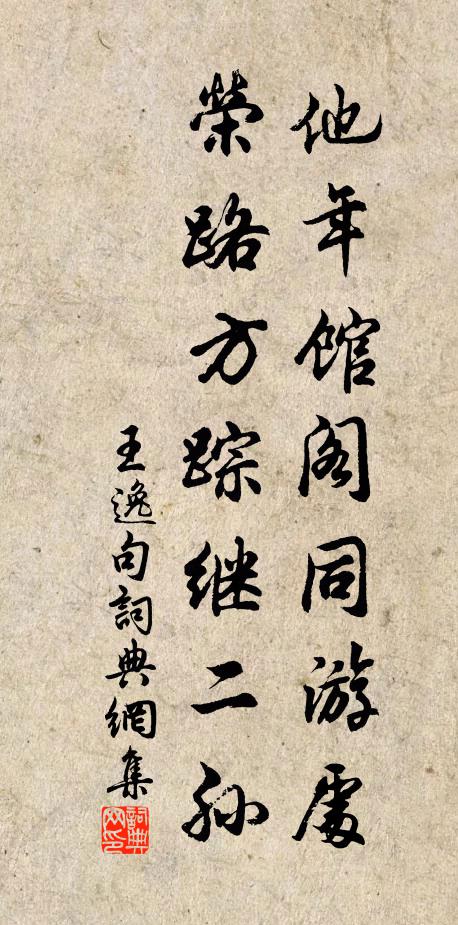 他年馆阁同游處
榮路方踪继二孙
王逸句詞典網集
詞典网印